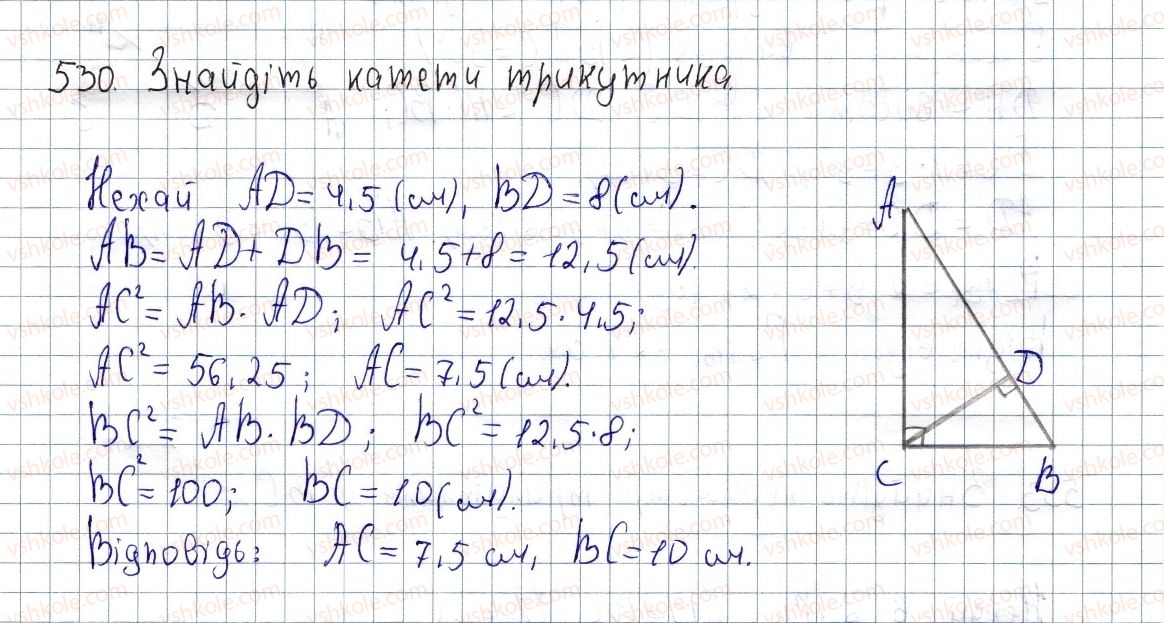 530. Знайдіть катети трикутника.
Нехай AD = 4,5 (см), BD = 8 (см).
AB = AD + DB = 4,5 + 8 = 12,5 (см).
AC² = AB · AD; AC² = 12,5 · 4,5;
AC² = 56,25; AC = 7,5 (см).
BC² = AB · BD; BC² = 12,5 · 8;
BC² = 100; BC = 10 (см).
Відповідь: AC = 7,5 см, BC = 10 см.
A
D
C
B
vshkole.com